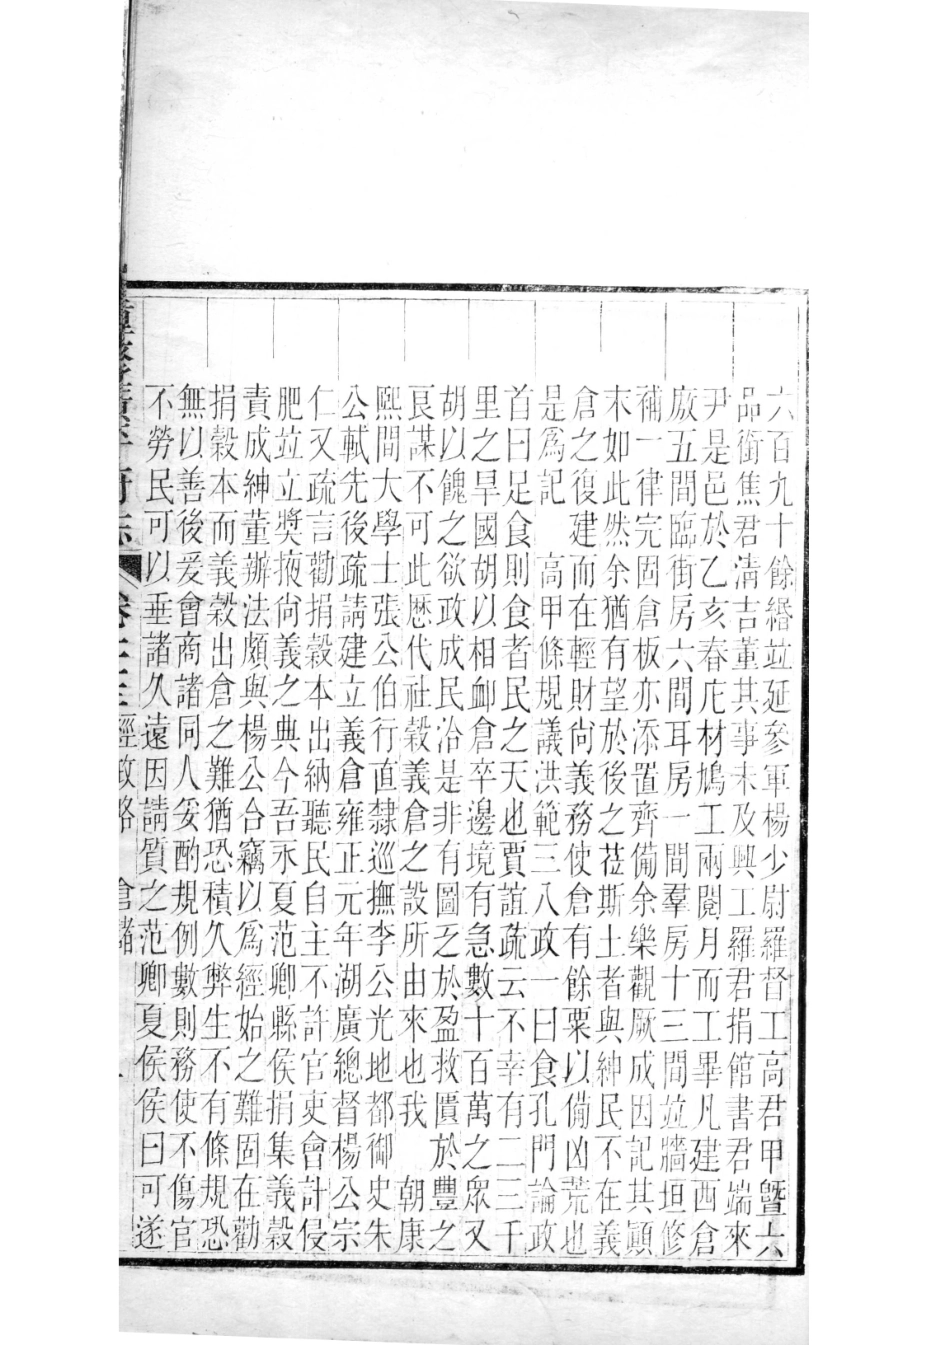 六百九十餘緡竝延參軍楊少尉羅督工高君甲曁六
品銜焦君清吉董其事未及興工羅君捐館書君端來
尹是邑於乙亥春庀材鳩工兩閱月而工畢凡建西倉
廒五間臨街房六間耳房一間羣房十三間竝牆垣修
補一律完固倉板亦添置齊備余樂觀厥成因記其顚
末如此然余猶有望於後之莅斯土者與紳民不在義
倉之復建而在輕財尙義務使倉有餘粟以備凶荒也
是爲記 高甲條規議洪範三八政一曰食孔門論政
首曰足食則食者民之天也賈誼疏云不幸有二三千
里之旱國胡以相卹倉卒邊境有急數十百萬之眾又
胡以餽之欲政成民洽是非有圖乏於盈救匱於豐之
良謀不可此歷代社穀義倉之設所由來也我 朝康
熙間大學士張公伯行直隸巡撫李公光地都御史朱
公軾先後疏請建立義倉雍正元年湖廣總督楊公宗
仁又疏言勸捐穀本出納聽民自主不許官吏會計侵
肥竝立獎掖尙義之典今吾永夏范卿縣侯捐集義穀
責成紳董辦法頗與楊公合竊以爲經始之難固在勸
捐穀本而義穀出倉之難猶恐積久弊生不有條規恐
無以善後爰會商諸同人妥酌規例數則務使不傷官
不勞民可以垂諸久遠因請質之范卿夏侯侯曰可遂
經政略 倉儲